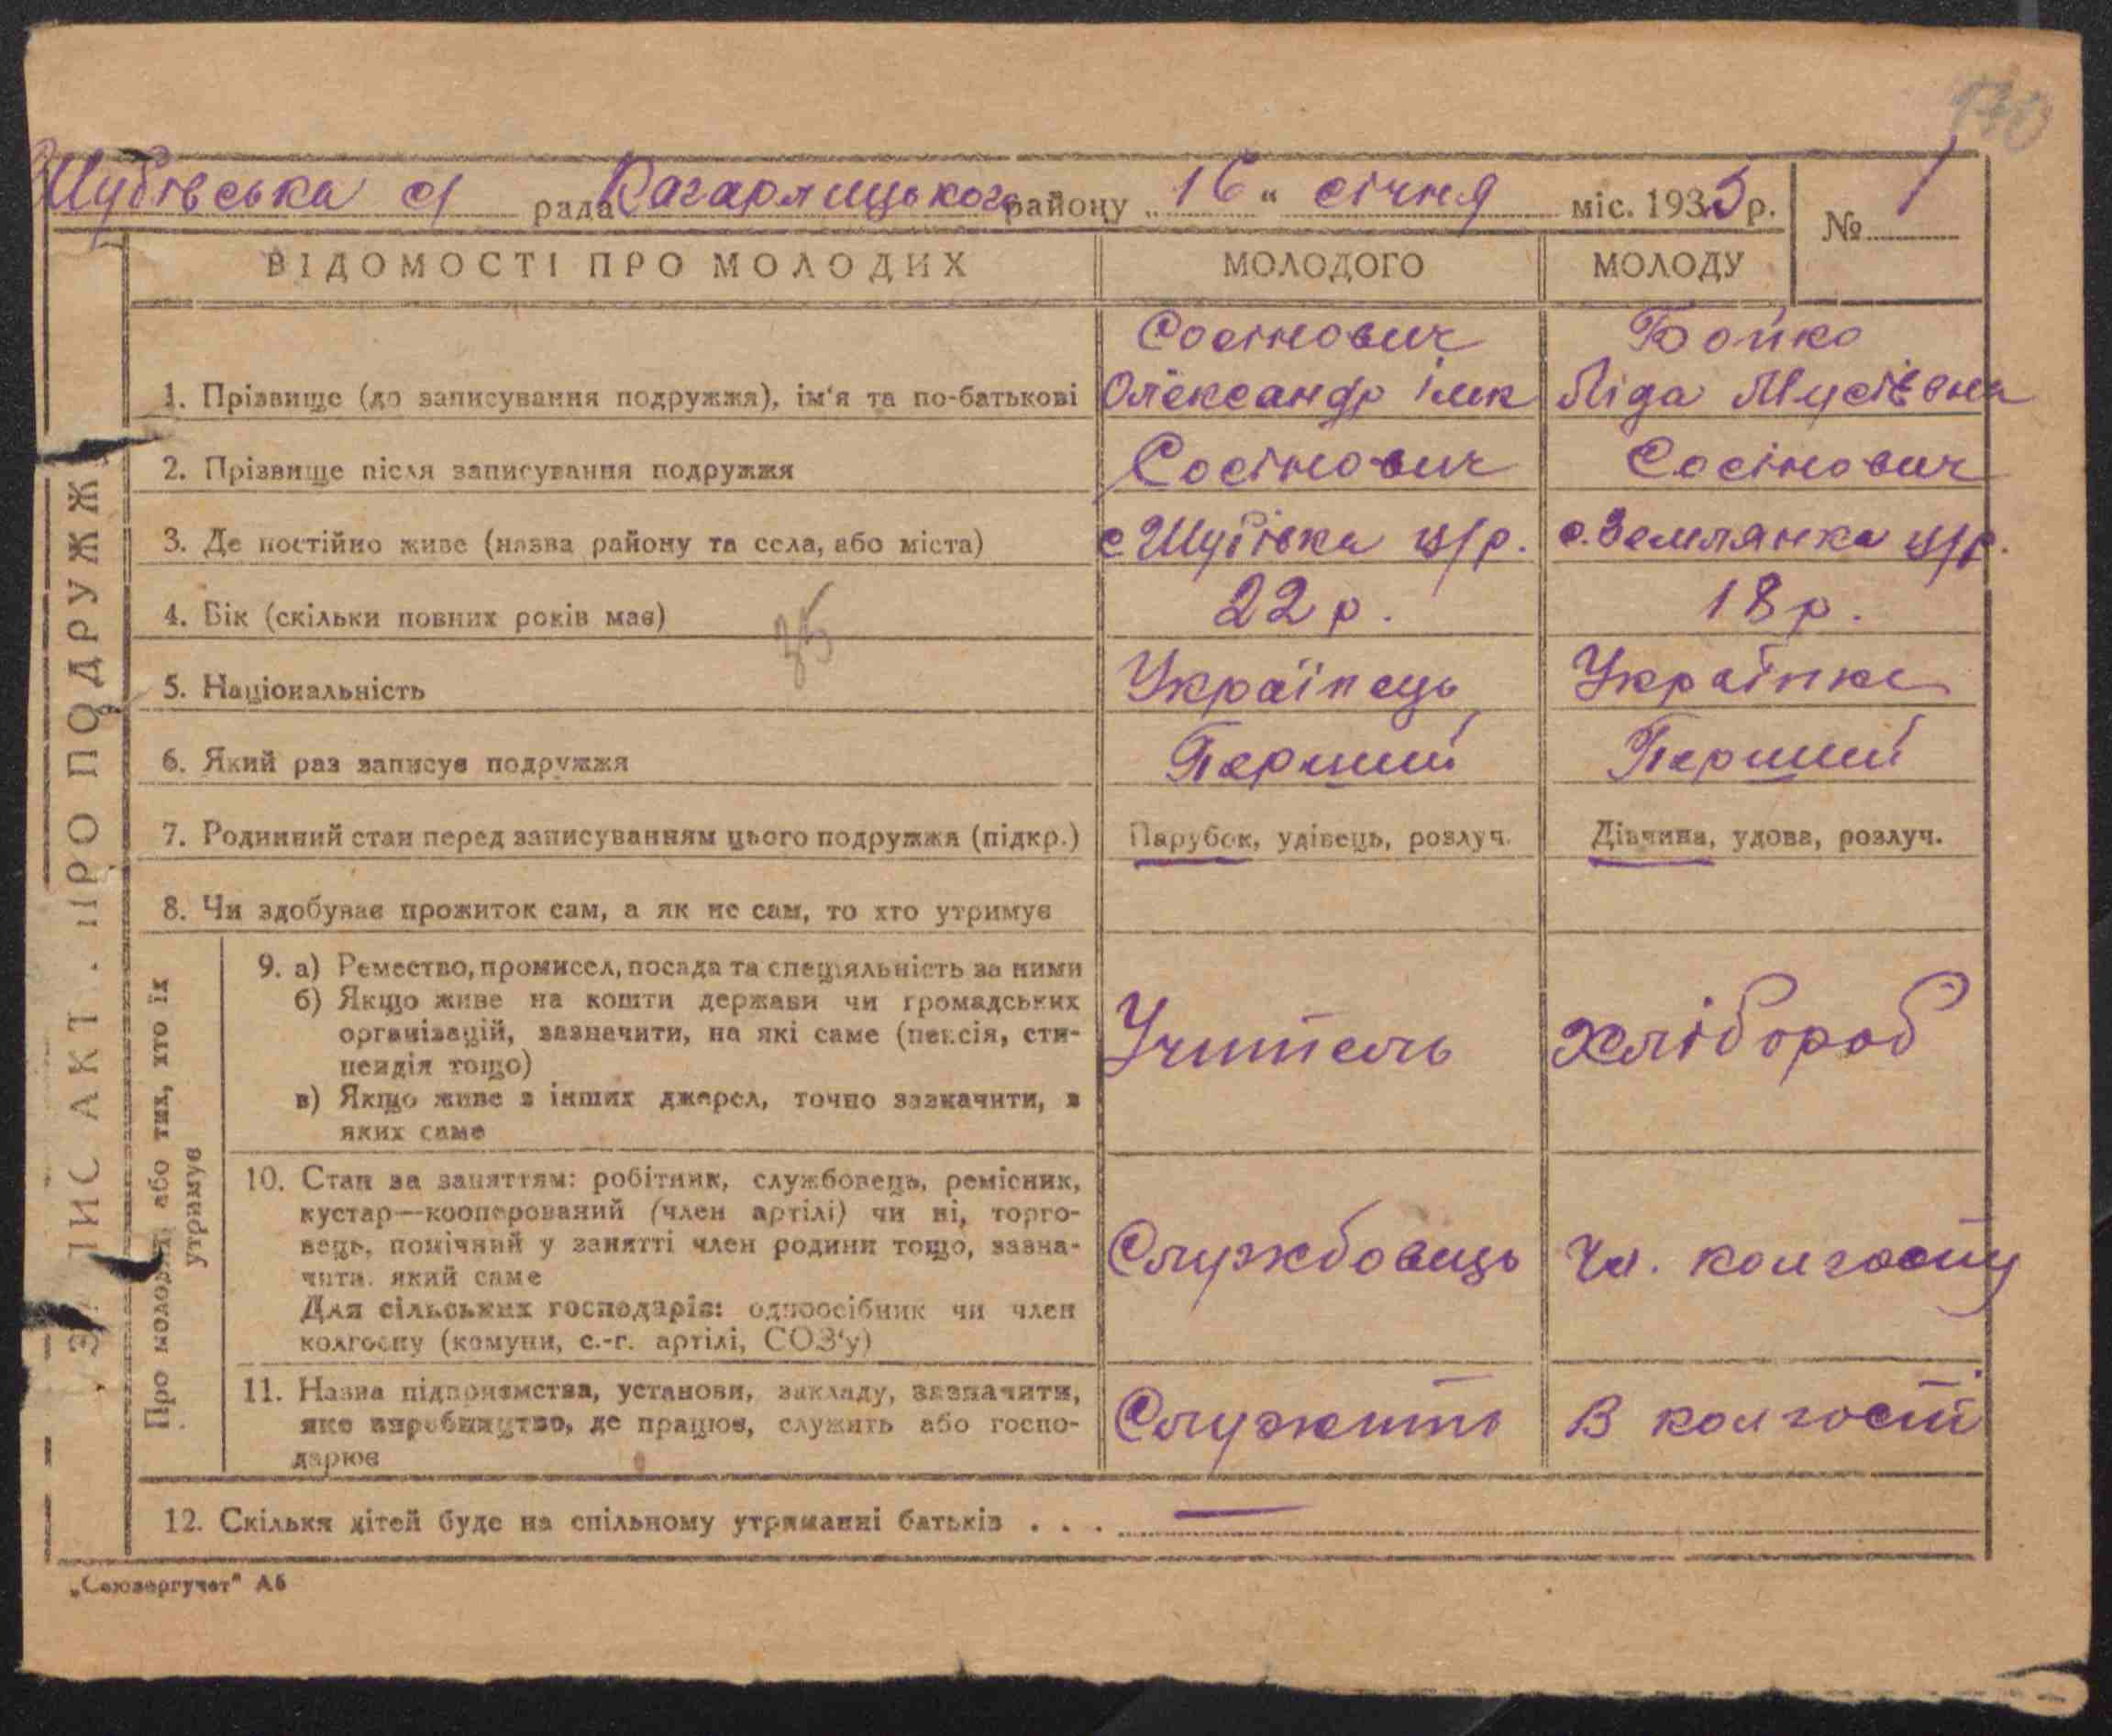 170
Шубівська с/ рада Кагарлицького району „16“ січня міс. 1935 р. № 1
ВІДОМОСТІ ПРО МОЛОДИХ МОЛОДОГО МОЛОДУ
Сосінович Бойко
1. Прізвище (до записування подружжя), ім'я та по-батькові Олександр Ілик Ліда Мусіївна
2. Прізвище після записування подружжя Сосінович Сосінович
3. Де постійно живе (назва району та села, або міста) с. Шубівка ц/р. с. Землянка ц/р.
4. Вік (скільки повних років має) 22 р. 18 р.
35
5. Національність Українець Українка
6. Який раз записує подружжя Перший Перший
7. Родинний стан перед записуванням цього подружжя (підкр.) Парубок, удівець, розлуч. Дівчина, удова, розлуч.
8. Чи здобуває прожиток сам, а як не сам, то хто утримує
9. а) Ремество, промисел, посада та спеціяльність за ними
б) Якщо живе на кошти держави чи громадських
організацій, зазначити, на які саме (пенсія, сти-
пендія тощо)
в) Якщо живе з інших джерел, точно зазначити, з
яких саме
Учитель Хлібороб
10. Стан за заняттям: робітник, службовець, ремісник,
кустар—кооперований (член артілі) чи ні, торго-
вець, помічний у занятті член родини тощо, зазна-
чити, який саме
Для сільських господарів: одноосібник чи член
колгоспу (комуни, с.-г. артілі, СОЗ'у)
Службовець Чл. колгоспу
11. Назва підприємства, установи, закладу, зазначити,
яке виробництво, де працює, служить або госпо-
дарює
Служить В колгоспі
12. Скільки дітей буде на спільному утриманні батьків . . . —
„Союзоргучет" А6
ЗАПИС АКТ. ПРО ПОДРУЖЖЯ
Про молодих або тих, хто їх
утримує